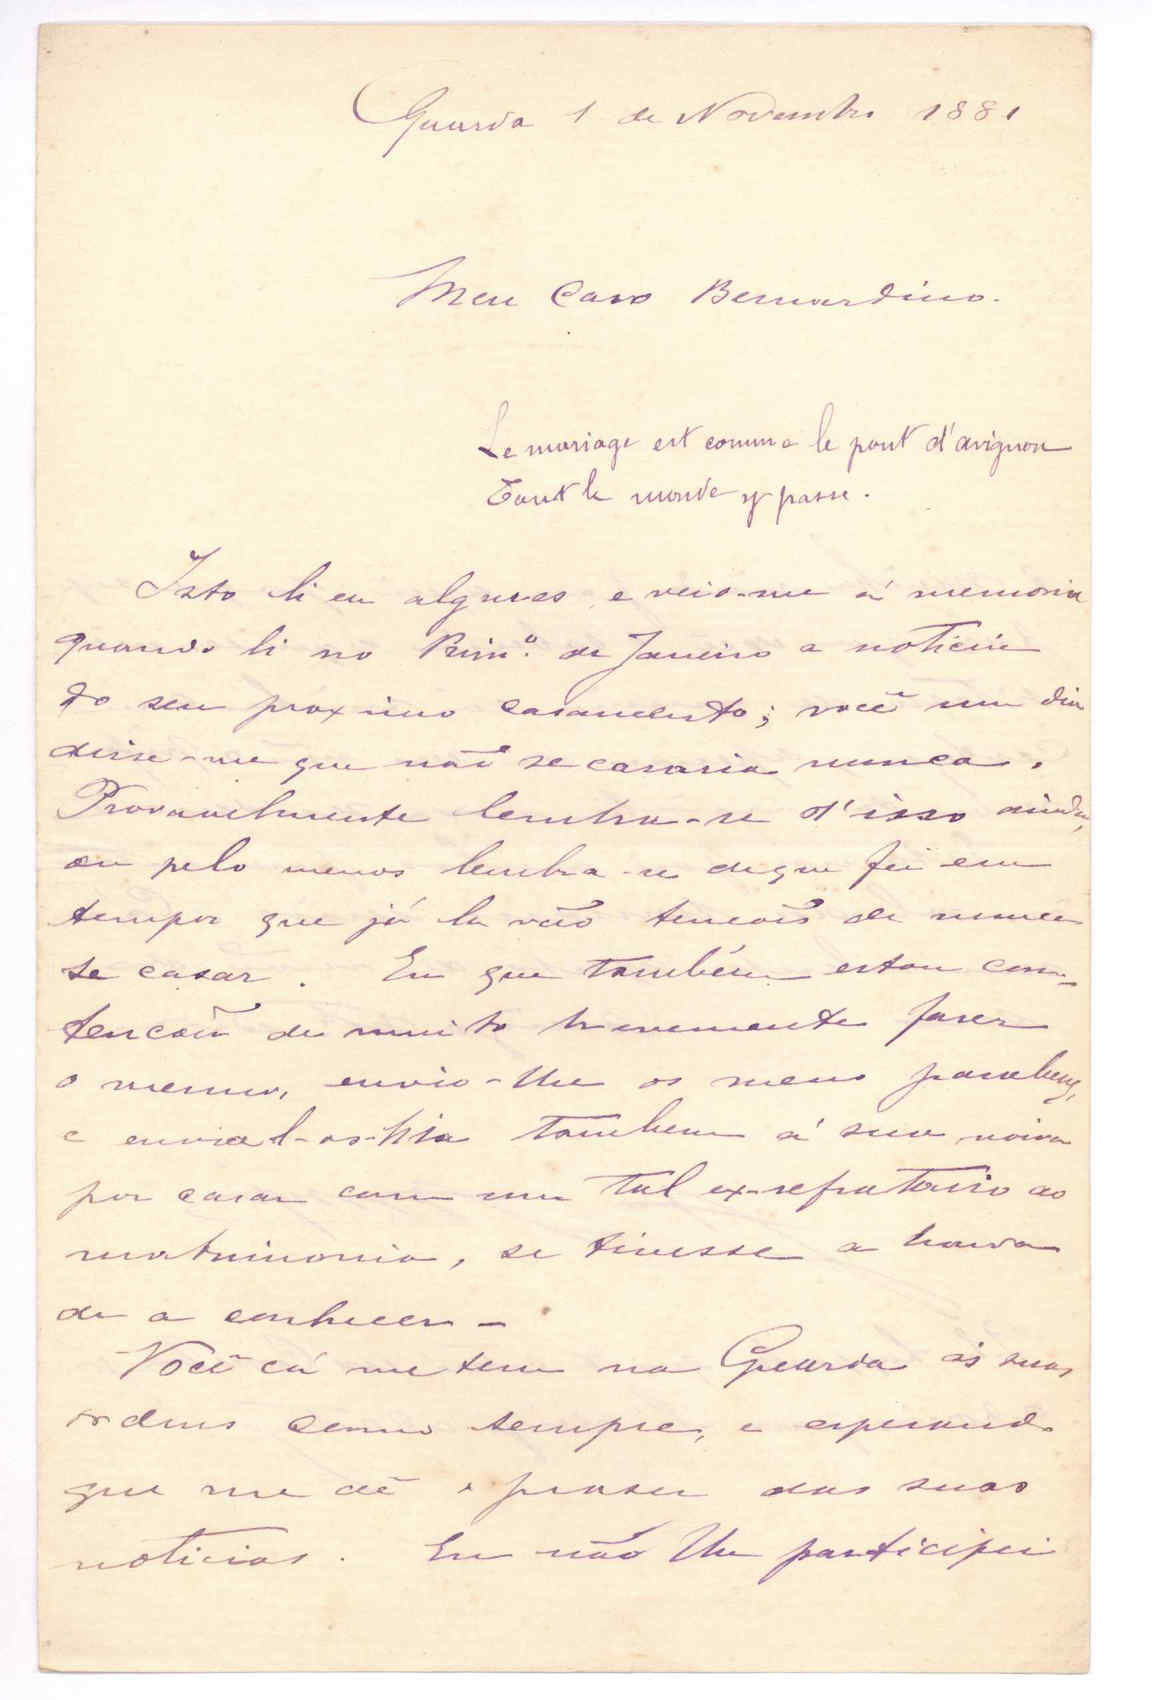 Guarda 1 de Novembro 1881
Meu Caro Bernardino.
Le mariage est comme le pont d'avignon
Tout le monde y passe.
Isto li eu algures e veio-me á memoria
quando li no Prim.º de Janeiro a noticia
do seu proximo casamento; você um dia
disse-me que não se casaria nunca.
Provavelmente lembra-se d'isso ainda,
ou pelo menos lembra-se de que fez em
tempos que já la vão tenção de nunca
se casar. Eu que também estou com
tenção de muito brevemente fazer
o mesmo, envio-lhe os meus parabens,
e envial-os-hia tambem á sua noiva
por casar com um tal ex-refratario ao
matrimonio, se tivesse a honra
de a conhecer -
Você cá me tem na Guarda ás suas
ordens como sempre, e esperando
que me dê o prazer das suas
noticias. Eu não lhe participei